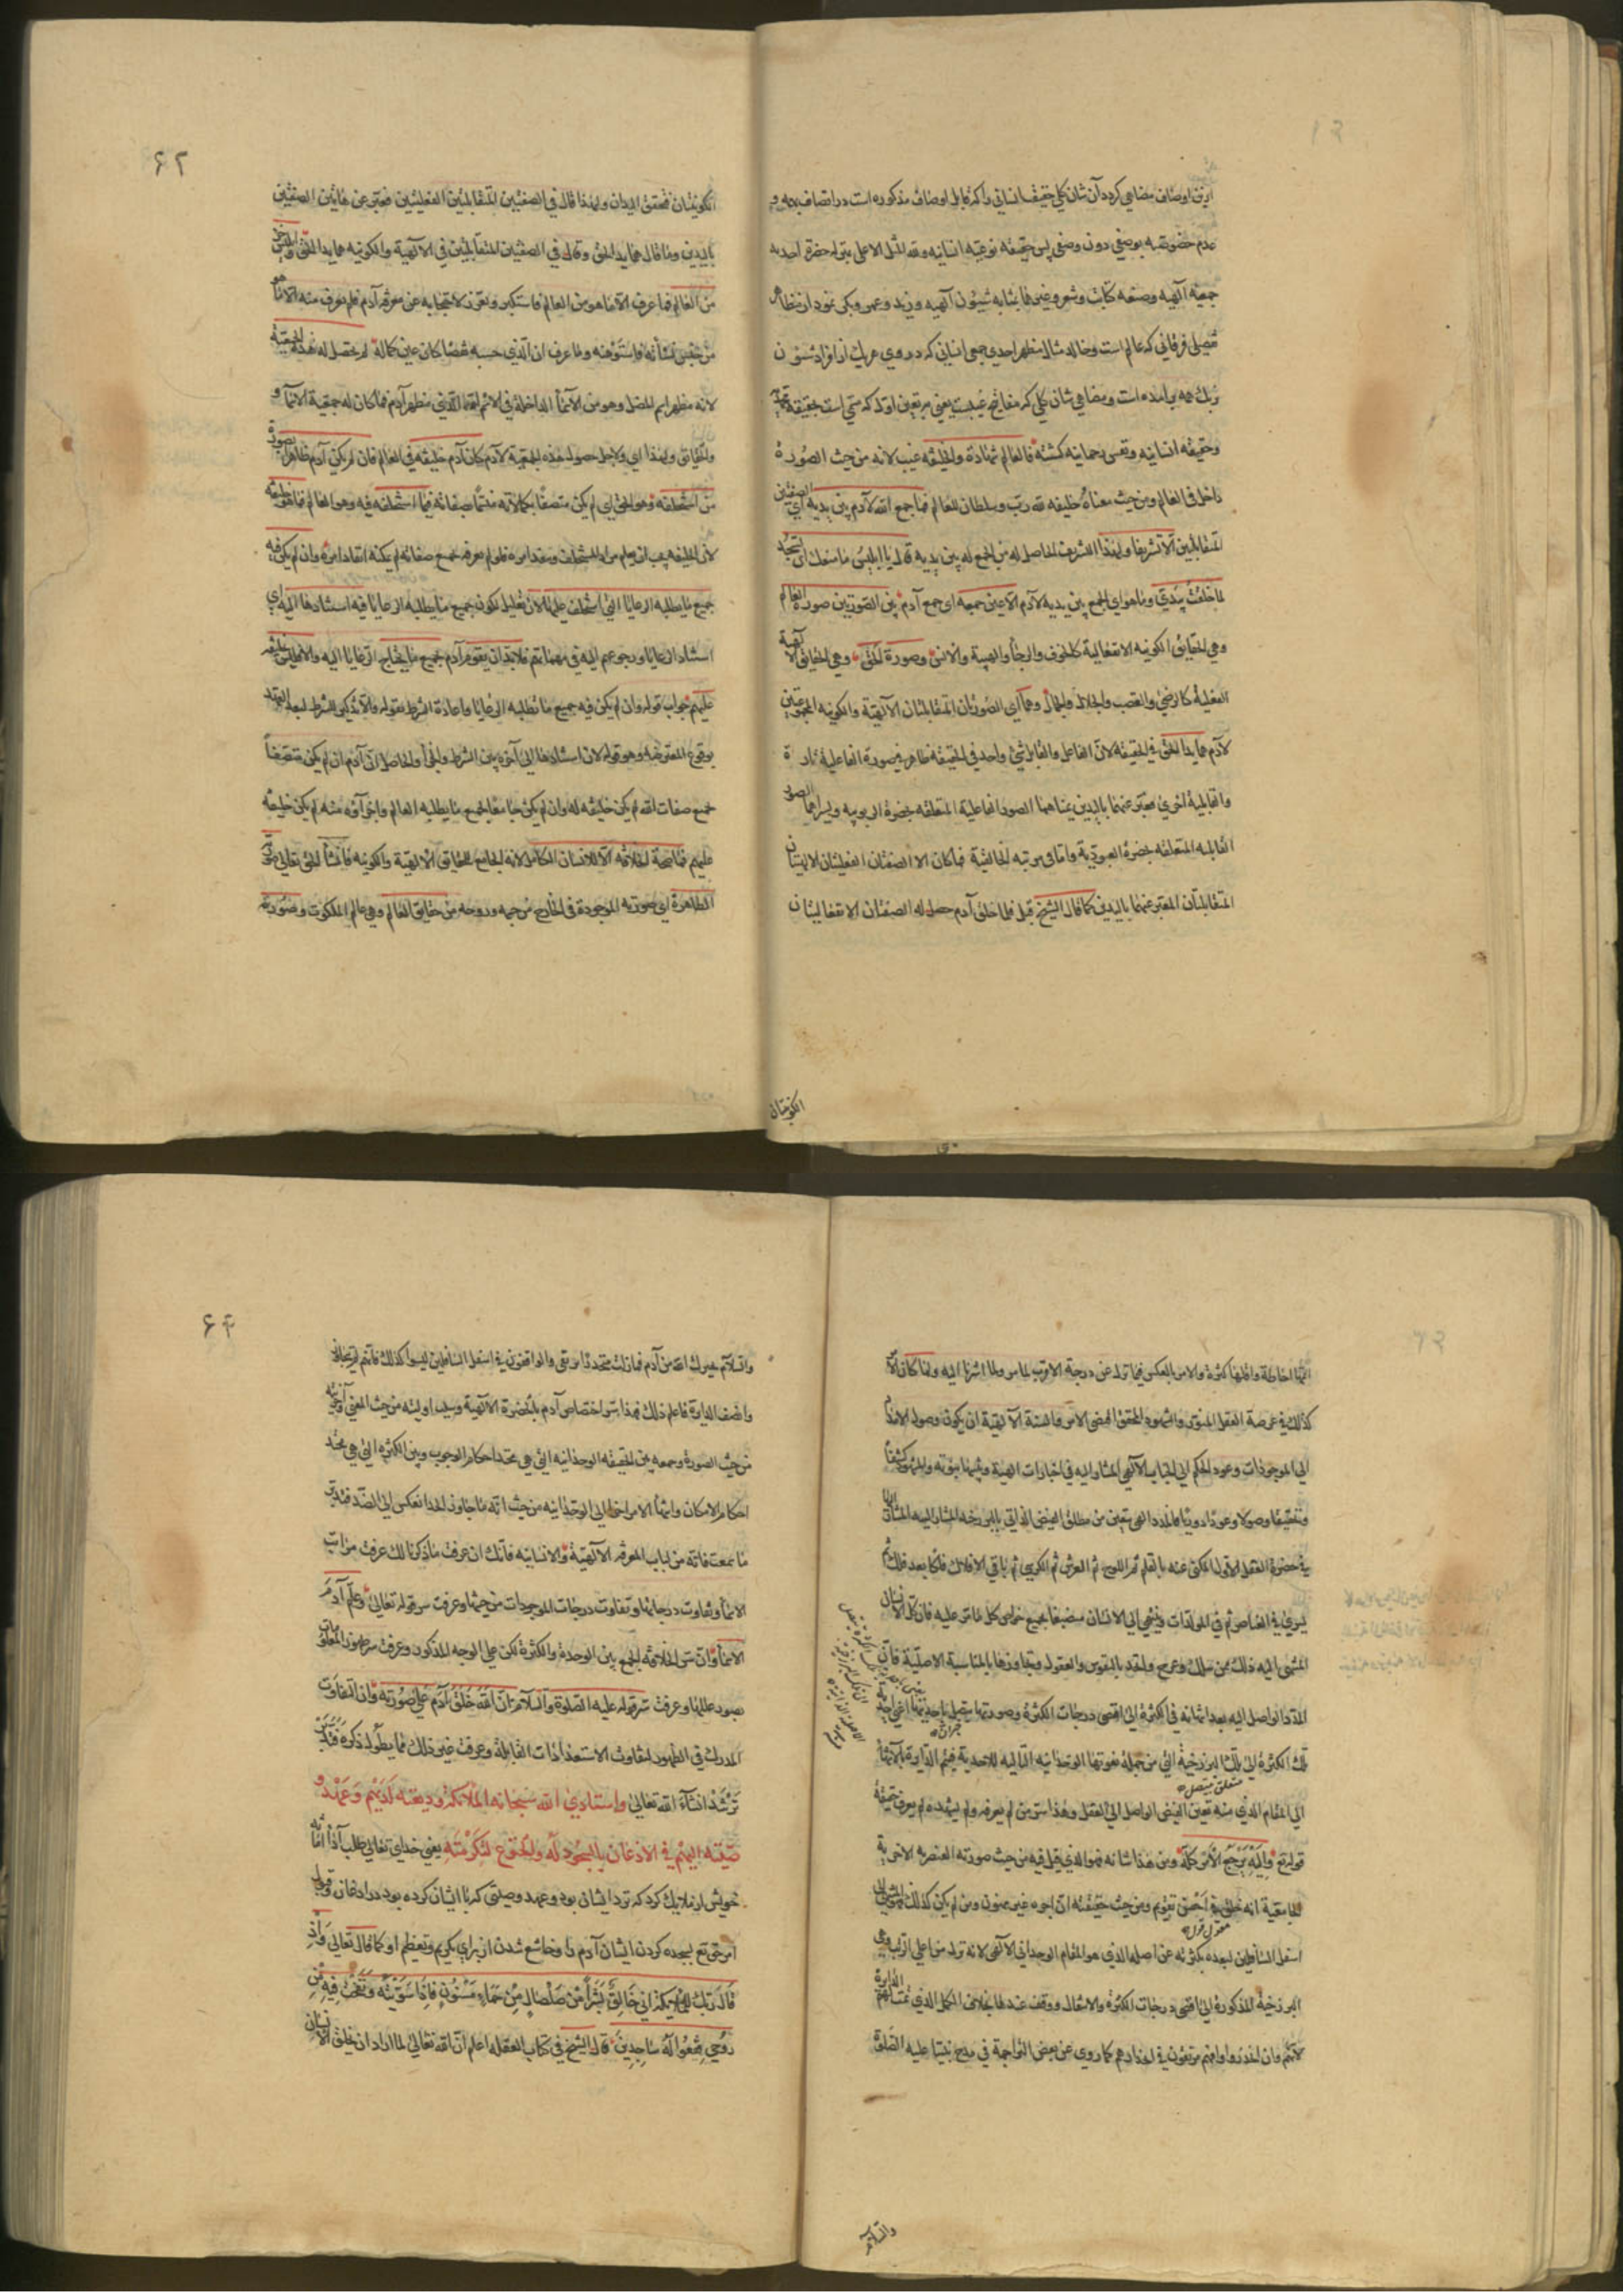 ازین اوصاف مضاهی کردد آن شان کلی حقیقت انسانی را که قابل اوصاف مذکوره است در اتصاف بهمه و
عدم خصوصیه بوصفی دون وصفی پس حقیقه نوعیه انسانیه ولله المثل الاعلی بمنزله حضرة احدیه
جمعیه آلهیه وصفه کتابت وشعر وغیرها بمثابه شیون آلهیه وزید وعمرو وبکر نمودار مظاهر
تفصیلی فرقانی که عالم است وخالد مثال مظهر احدی جمعی انسانی که در وی هر یک از افراد شیون
برنک همه بر آمده است ومضاهی شان کلی که مفاتیح غیبست یعنی مرتعین اول که مسمی است بحقیقه محمدیه
وحقیقه انسانیه ونفس رحمانیه کشته فالعالم شهادة والخلیفه غیب لانه من حیث الصورة
داخل فی العالم ومن حیث معناه خلیفه لله ربّ وسلطان للعالم فما جمع الله لآدم بین یدیه ای الصفتین
المتقابلتین الّا تشریفا ولهذا التشریف الحاصل له من الجمع له بین یدیه قال یا ابلیس ما منعک ان تسجد
لما خلقت بیدیّ وما هو ای الجمع بین یدیه لآدم الّا عین جمعه ای جمع آدم بین الصورتین صورة العالم
وهی الحقایق الکونیه الانفعالیة کالخوف والرجا والهیبة والانس وصورة الحق وهی الحقایق الآلهیة
الفعلیة کالرضی والغضب والجلال والجمال وهما ای الصورتان المتقابلتان الآلهیّة والکونیه المجموعتین
لآدم هما یدا الحق فی الحقیقه لانّ الفاعل والقابل شئ واحد فی الحقیقه ظاهر فی صورة الفاعلیة تارة
والقابلیة اخری فعبّر عنهما بالیدین یمناهما الصور الفاعلیة المتعلقه بحضرة الربوبیه ویسراهما الصور
القابلیه المتعلقه بحضرة العبودیة واما فی مرتبه الخالقیة فما کان الا الصفتان الفعلیتان الالهیتان
المتقابلتان المعبّر عنهما بالیدین کما قال الشیخ قبل فلما خلق آدم حصل له الصفتان الانفعالیتان
الکونیتان
۶۲
الکونیتان فتحقق الیدان ولهذا قال فی الصفتین المتقابلتین الفعلیتین فعبّر عن هاتین الصفتین
بالیدین وما قال هما یدا الحق وقال فی الصفتین المتقابلتین فی الآلهیة والکونیه هما یدا الحقّ وابلیس جزء
من العالم فما عرف الّا ما هو من العالم فاستکبر وتعزز لاحتجابه عن معرفه آدم فلم یعرف منه الّا ما هو
من جنس نشأته فاستوهنه وما عرف ان الذی حسبه نقصا کان عین کماله لم یحصل له هذه الجمعیّه
لانه مظهر اسم المضل وهو من الاسماء الداخله فی الاسم الله الذی مظهره آدم فما کان له جمعیة الاسماء و
والحقایق ولهذا ای ولاجل حصول هذه الجمعیّة لآدم کان آدم خلیفه فی العالم فان لم یکن آدم ظاهراً بصورة
من استخلفه وهو الحق ای لم یکن متصفا بکمالاته متسما بصفاته فیما استخلفه فیه وهو العالم فما هو خلیفه
لانّ الخلیفه یجب ان یعلم مراد المستخلف وینفد امره فلو لم یعرفه بجمیع صفاته لم یمکنه انفاذ امره وان لم یکن فیه
جمیع ما یطلبه الرعایا التی استخلف علیها لانّ تعلیل لکون جمیع ما یطلبه الرعایا فیه استنادها الیه ای
استناد الرعایا ورجوعهم الیه فی مهماتهم فلا بد ان یقوم آدم بجمیع ما یحتاج الرعایا الیه والا فلیس بخلیفه
علیهم جواب قوله وان لم یکن فیه جمیع ما تطلبه الرعایا واعادة الشرط بقوله والّا تذکیر للشرط لبعد العهد
بوقوع المعترضه وهو قوله لان استنادها الی آخره بین الشرط والجزأ والحاصل انّ آدم ان لم یکن متصفاً
بجمیع صفات الله لم یکن خلیفه له وان لم یکن جامعا لجمیع ما یطلبه العالم واجزآؤه منه لم یکن خلیفه
علیهم فما صحّة الخلافه الّا للانسان الکامل لانه الجامع للحقایق الالهیّة والکونیه فانشأ الحق تعالی صورته
الظاهرة ای صورته الموجودة فی الخارج من جسمه وروحه من حقایق العالم وهی عالم الملکوت وصوره
اتمّها احاطة واقلها کثرة والامر بالعکس فیما نزل عن درجة الاقرب لما مر ولما اشرنا الیه ولمّا کان الامر
کذلک فی عرصة العقل المنور والشهود المحقق اقتضی الامر والسنة الآلهیة ان یکون وصول الامداد
الی الموجودات وعود الحکم الی الجناب الآلهی المشار الیه فی اخبارات الهیة وتنبیهات نبویّه والمشهود کشفا
وتحقیقا وصولا وعودا دوریّا فالمدد الهی یتعیّن من مطلق الفیض الذاتی بالبرزخه المشار الیه المشار الیها
فی حضرة العقل الاول المکنّی عنه بالقلم ثم اللوح ثم العرش ثم الکرسی ثم باقی الافلاک فلکا بعد فلک ثم
یسری فی العناصر ثم فی المولدات وینتهی الی الانسان منصبغا بجمیع خواص کل ما مرّ علیه فان کان الانسان
المنتهی الیه ذلک ممّن سلک وعرج واتحد بالنفوس والعقول وتجاوزها بالمناسبة الاصلیّة فانّ
المدد الواصل الیه بعد انتهائه فی الکثرة الی اقصی درجات الکثرة وصورتها یتصل باحدیتها اعنی احدیه
تلک الکثرة الی تلک البرزخیة التی من جملة نعوتها الوحدانیه التالیه للاحدیة فیتم الدایرة بالانتهاء
متعلق بیتصل
الی المقام الذی منه تعیّن الفیض الواصل الی العقل وهذا سرّ من لم یعرفه ولم یشهده لم یعرف حقیقة
قوله تع والیه یرجع الامر کله ومن هذا شانه فهو الذی قیل فیه من حیث صورته العنصریه الاخریة
الجامعیة انه خلق فی احسن تقویم ومن حیث حقیقته انّ اجره غیر ممنون ومن لم یکن کذلک
اسفل السافلین لبعده بکثرته عن اصله الذی هو المقام الوحدانی الآلهی لانه نزل من اعلی الرتب وهی
البرزخیة المذکورة الی اقصی درجات الکثرة والانفعال ووقف عندها بخلاف الکمل الذی تمت لهم الدایرة
لانهم وان انحدروا وانهم مرتقون فی انحدارهم کما روی عن بعض التراجمة فی مدح نبیّنا علیه الصلوة
والسلام
۶۴
والسلام تخیّرک الله من آدم فما زلت منحدرا ترتقی والواقفون فی اسفل السافلین لیسوا کذلک فانهم لم یتجاوزوا
وانصف الدایرة فاعلم ذلک فهذا سرّ اختصاص آدم بالحضرة الآلهیة وسبب اولیته من حیث المعنی وآخریّته
من حیث الصورة وجمعه بین الحقیقه الوحدانیه التی هی محتد احکام الوجوب وبین الکثرة التی هی محتد
احکام الامکان وانتهأ الامر اخطا الی الوحدانیه من حیث انّه ما جاوز الحد انعکس الی الضّد فتدبّر
ما سمعت فانه من لباب المعرفه الآلهیة والانسانیه فانّک ان عرفت ما ذکرنا لک عرفت مراتب
الاسمأ وتفاوت درجاتها وتفاوت درجات الموجودات من حیثها وعرفت سر قوله تعالی وعلّم آدم
الاسمأ وانّ سرّ الخلافة الجمع بین الوحدة والکثرة لکن علی الوجه المذکور وعرفت سر ظهور المعلومات
بصور عللها وعرفت سّر قوله علیه الصّلوة والسّلام انّ الله خلق آدم علی صورته وانّ التفاوت
المدرک فی الظهور لتفاوت الاستعدادات القابلة وعرفت غیر ذلک مما یطول ذکره فتدبّر
ترشد انشآء الله تعالی واستنادی الله سبحانه الملائکة ودیعته لدیهم وعهد و
صیّته الیهم فی الاذعان بالسجود له والخشوع لتکرمته یعنی خدای تعالی طلب آدا امانه
خویش از ملایک کرد که نزد ایشان بود وعهد وصیتی که با ایشان کرده بود در اذعان وقبول
امر حق تع بسجده کردن ایشان آدم را وخاشع شدن از برای تکریم وتعظیم او کما قال تعالی واذ
قال ربّک للملائکة انی خالق بشراً من صلصال من حماء مسنون فاذا سوّیته ونفخت فیه من
روحی فقعوا له ساجدین قال الشیخ فی کتاب العقله اعلم انّ الله تعالی لما اراد ان یخلق الانسان